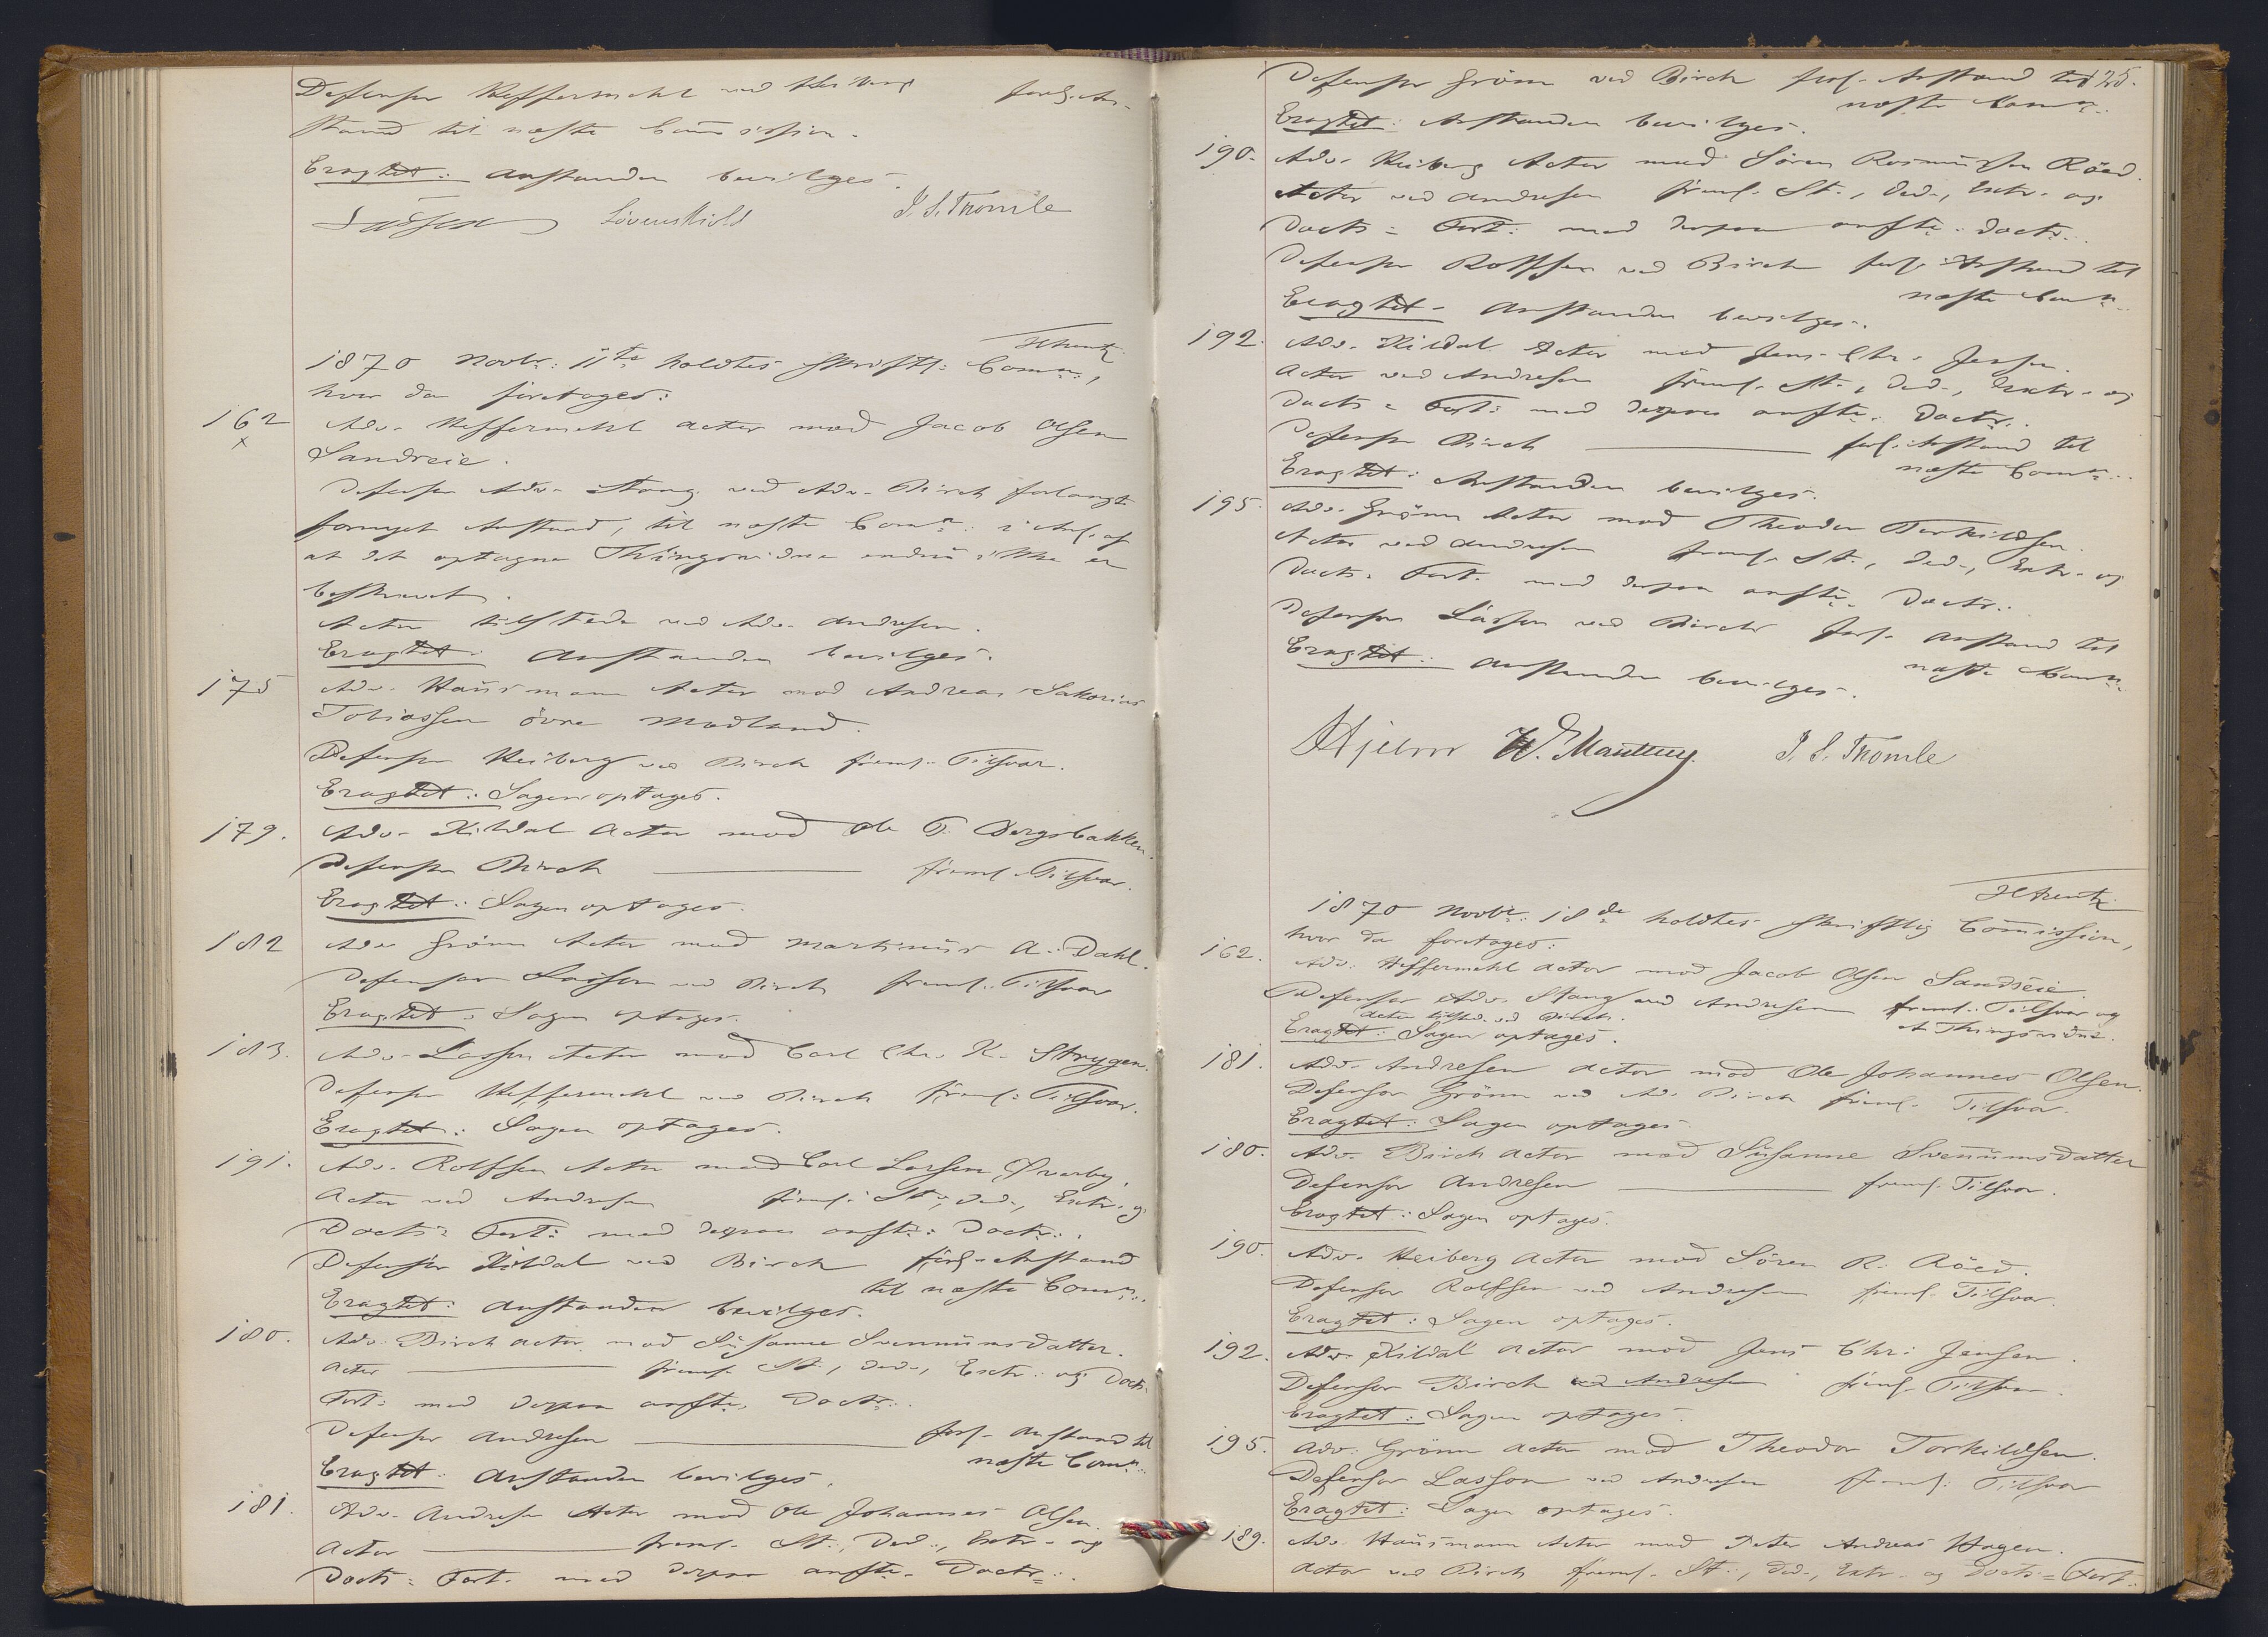 Defensor Heffermehl ved Heiberg forl. An-
stand til næste Commission.
Eragtet: Anstanden bevilges.
Lasson Løvenskiold J. S. Thomle
1870 Novbr: 11te holdtes skriftl: Comn:,
hvor da foretoges:
162 Adv. Heffermehl Actor mod Jacob Olsen
x
Sandreie.
Defensor Adv. Stang ved Adv. Birch forlangte
fornyet Anstand, til næste Comn: i Anl. af
at det optagne Thingsvidne endnu ikke er
beskrevet.
Actor tilstede ved Adv. Andresen.
Eragtet: Anstanden bevilges.
175 Adv. Hausmann Actor mod Andreas Sakarias
Tobiassen övre Modland.
Defensor Heiberg ved Birch freml. Tilsvar.
Eragtet: Sagen optages.
179. Adv. Kildal Actor mod Ole T. Bergsbakken.
Defensor Birch freml. Tilsvar.
Eragtet: Sagen optages.
182 Adv. Grönn Actor mod Martinius A. Dahl.
Defensor Lasson ved Birch freml. Tilsvar
Eragtet: Sagen optages.
183. Adv. Lasson Actor mod Carl Chr. K. Strygen.
Defensor Heffermehl ved Birch freml: Tilsvar.
Eragtet: Sagen optages.
191. Adv. Rolfsen Actor mod Carl Larsen Øverby.
Actor ved Andresen freml. St:, Ded., Extr. og
Docts: Fort: med derpaa anfte: Doctr:.
Defensor Kildal ved Birch forl. Anstand
til næste Comn:.
Eragtet: Anstanden bevilges.
180. Adv. Birch Actor mod Susanne Svennumsdatter.
Actor freml. St:, Ded., Extr: og Docts:
Fort: med derpaa anfte. Doctr:.
Defensor Andresen forl. Anstand til
næste Comn:.
Eragtet: Anstanden bevilges.
181. Adv. Andresen Actor mod Ole Johannes Olsen.
Actor freml. St:, Ded:, Extr. og
Docts: Fort. med derpaa anfte. Doctr:.
Defensor Grönn ved Birch forl. Anstand til 125.
næste Comn:.
Eragtet: Anstanden bevilges.
190. Adv. Heiberg Actor mod Sören Rasmussen Röed.
Actor ved Andresen freml. St:, Ded., Extr. og
Docts: Fort: med derpaa anfte. Doctr:.
Defensor Rolfsen ved Birch forl. Anstand til
næste Comn:
Eragtet. Anstanden bevilges.
192. Adv. Kildal Actor mod Jens Chr. Jensen.
Actor ved Andresen freml. St:, Ded., Extr. og
Docts: Fort: med derpaa anfte. Doctr:.
Defensor Birch forl. Anstand til
næste Comn:.
Eragtet: Anstanden bevilges.
195. Adv. Grönn Actor mod Theodor Torkildsen.
Actor ved Andresen freml. St:, Ded., Extr. og
Docts: Fort. med derpaa anfte. Doctr:.
Defensor Lasson ved Birch forl. Anstand til
næste Comn:
Eragtet: Anstanden bevilges.
Hjelm J. S. Thomle
1870 Novbr: 18de holdtes skriftlig Commission,
hvor da foretoges:
162. Adv. Heffermehl Actor mod Jacob Olsen Sandreie.
Defensor Adv. Stang ved Andresen freml. Tilsvar og
et Thingsvidne.
Actor tilsted. ved Birch.
Eragtet: Sagen optages.
181. Adv. Andresen Actor mod Ole Johannes Olsen.
Defensor Grönn ved Ad. Birch freml. Tilsvar.
Eragtet: Sagen optages.
180. Adv. Birch Actor mod Susanne Svennumsdatter
Defensor Andresen freml. Tilsvar.
Eragtet: Sagen optages.
190. Adv. Heiberg Actor mod Sören R. Röed.
Defensor Rolfsen ved Andresen freml. Tilsvar.
Eragtet: Sagen optages.
192. Adv. Kildal Actor mod Jens Chr: Jensen.
Defensor Birch ved Andresen freml. Tilsvar.
Eragtet: Sagen optages.
195. Adv. Grönn Actor mod Theodor Torkildsen.
Defensor Lasson ved Andresen freml: Tilsvar
Eragtet: Sagen optages.
189. Adv. Hausmann Actor mod Peter Andreas Hagen.
Actor ved Birch freml. St:, Ded., Extr. og Docts: Fort: